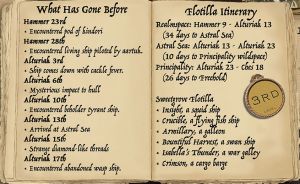 What Has Gone Before
Hammer 23rd
• Encountered pod of kindori
Hammer 28th
• Encountered living ship piloted by aartuk.
Alturiak 3rd
• Ship comes down with cackle fever.
Alturiak 6th
• Mysterious impact to hull
Alturiak 10th
• Encountered beholder tyrant ship.
Alturiak 13th
• Arrived at Astral Sea
Alturiak 15th
• Strange diamond-like threads
Alturiak 17th
• Encountered abandoned wasp ship.
Flotilla Itinerary
Realmspace: Hammer 9 - Alturiak 13
(34 days to Astral Sea)
Astral Sea: Alturiak 13 - Alturiak 23
(10 days to Principality wildspace)
Principality: Alturiak 23 - Ches 18
(26 days to Freehold)
Sweetgrow Flotilla
• Insight, a squid ship
• Crucible, a flying fish ship
• Armillary, a galleon
• Bountiful Harvest, a swan ship
• Isabella's Thunder, a war galley
• Crimson, a cargo barge
3RD